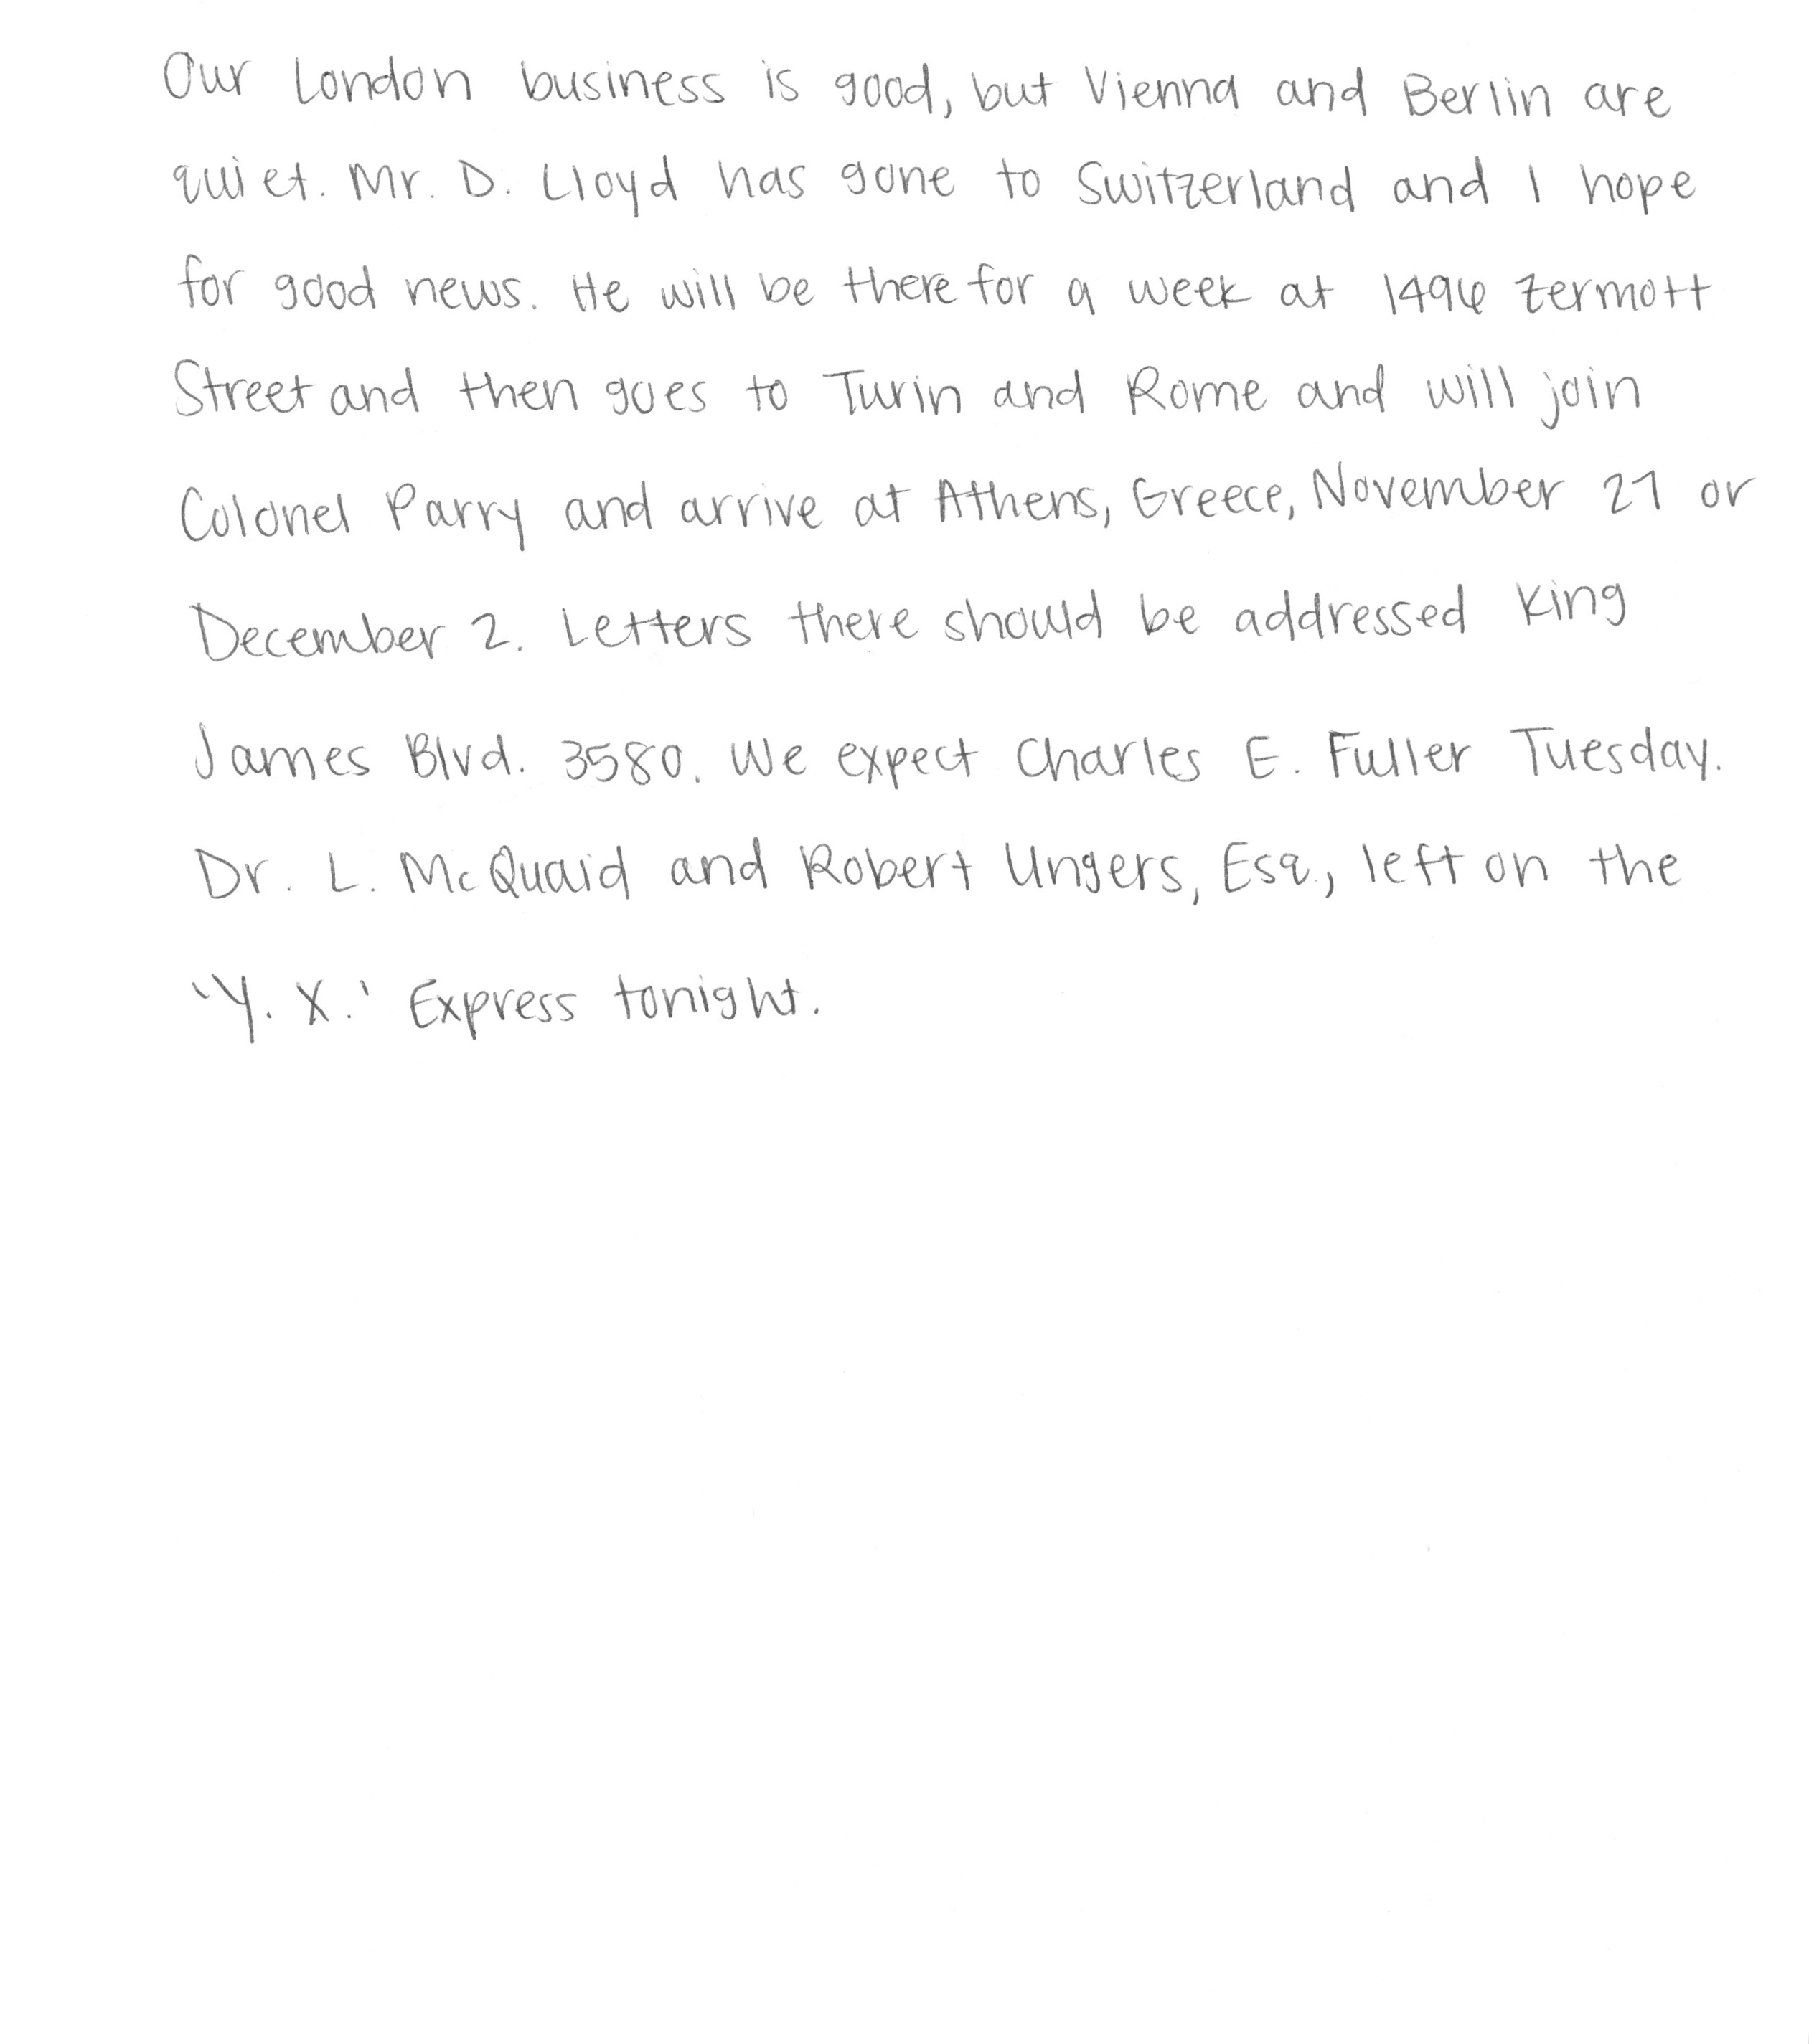 Our London business is good, but Vienna and Berlin are
quiet. Mr. D. Lloyd has gone to Switzerland and I hope
for good news. He will be there for a week at 1496 Zermott
Street and then goes to Turin and Rome and will join
Colonel Parry and arrive at Athens, Greece, November 27 or
December 2. Letters there should be addressed King
James Blvd. 3580. We expect Charles E. Fuller Tuesday.
Dr. L. McQuaid and Robert Ungers, Esq., left on the
'Y. X.' Express tonight.